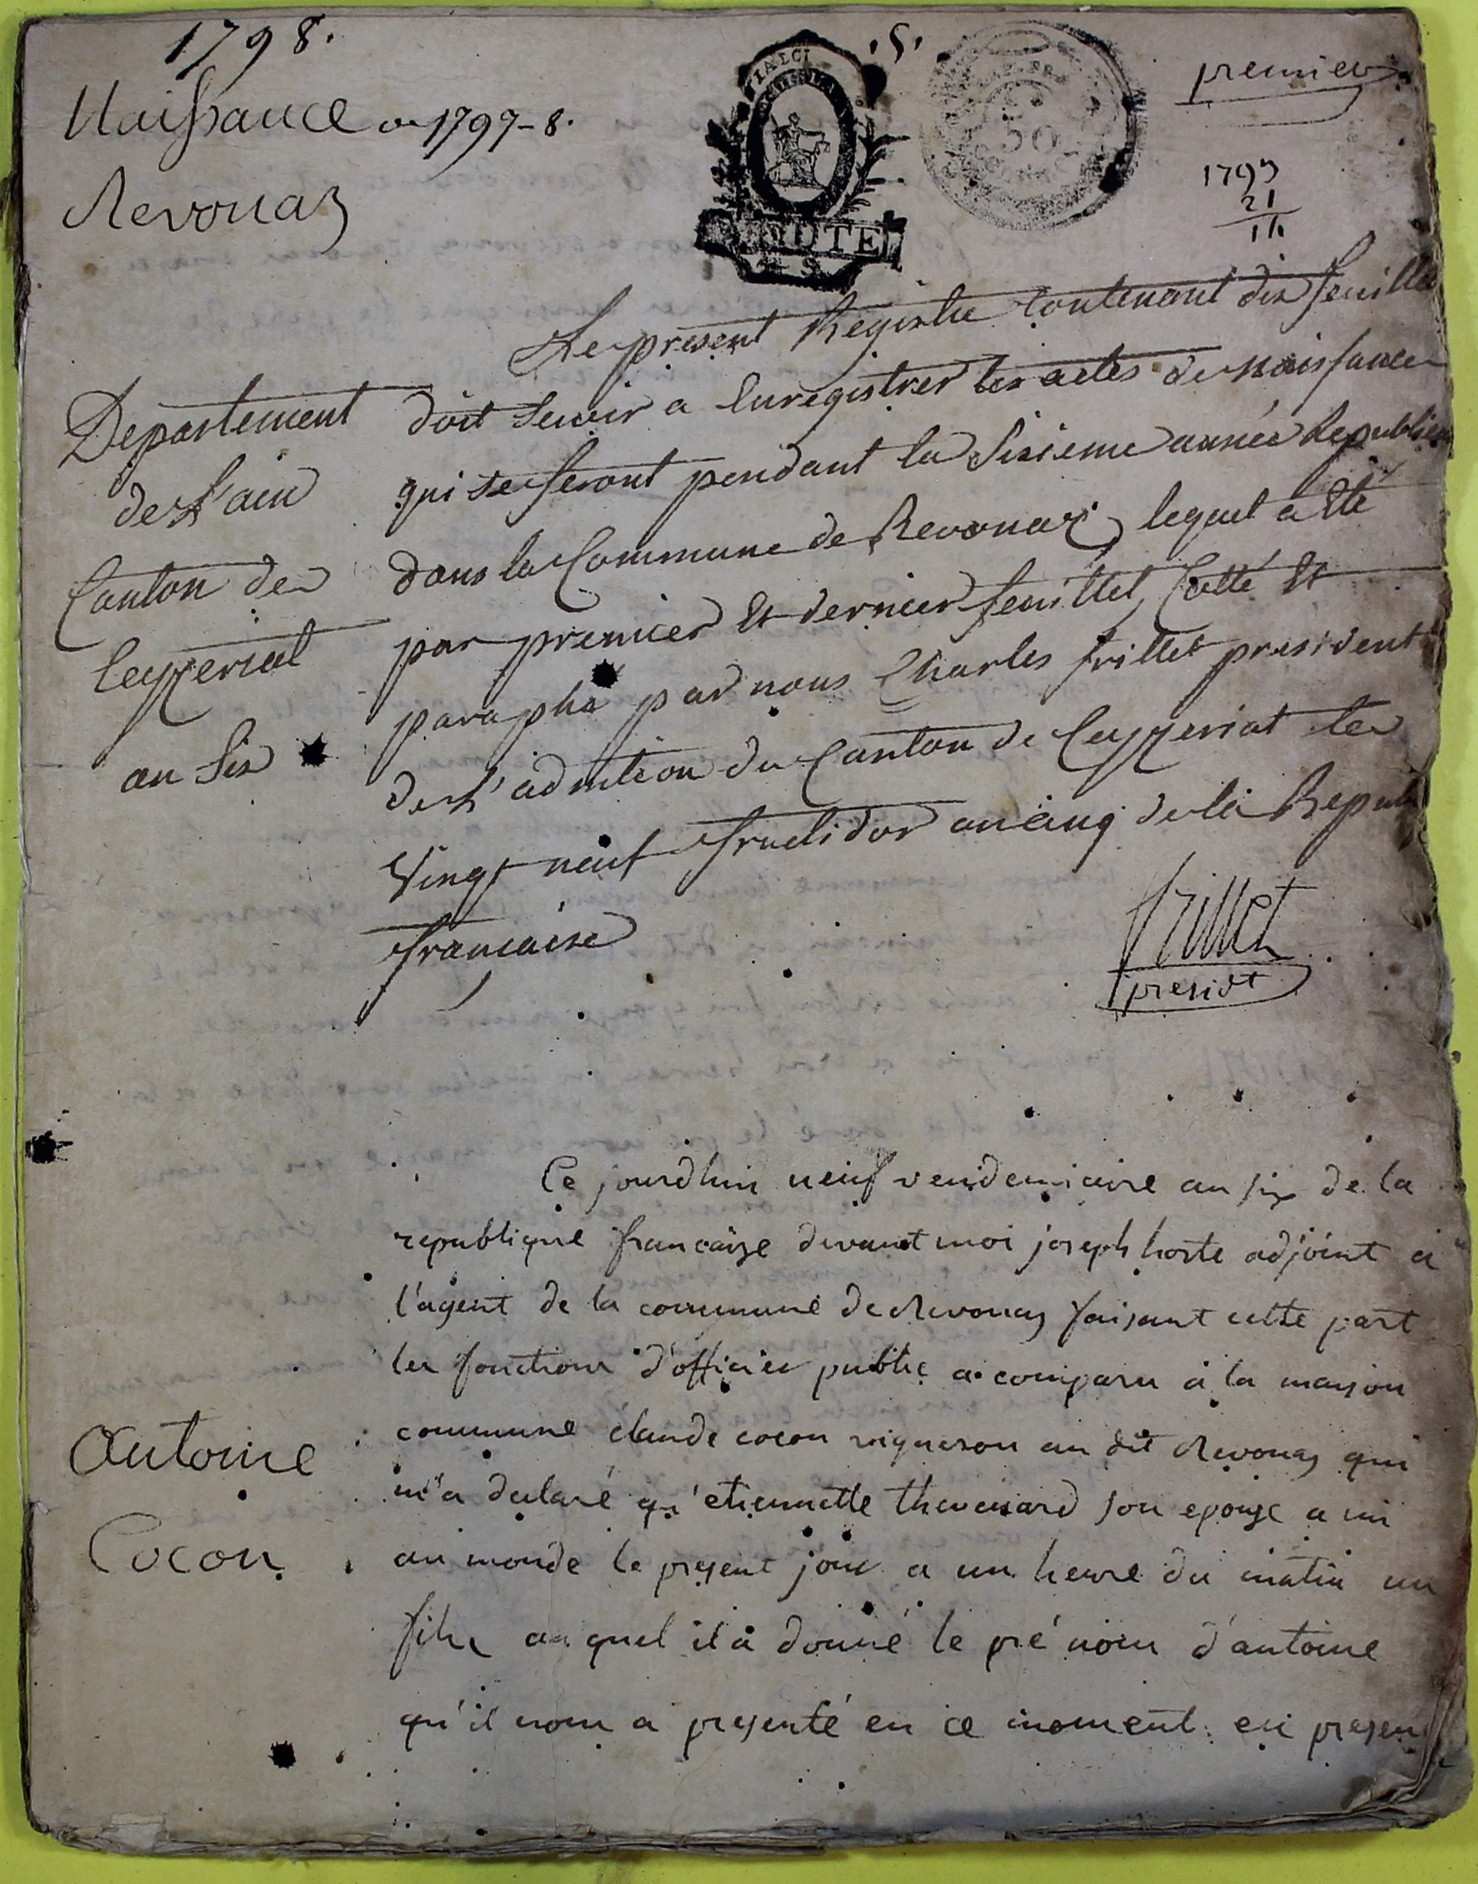 1798.
Naissance an 1797-8.
Revonas
.5.
premier
50
1797
21
Le present Registre contenant dix feuillets
doit servir a Enregistrer les actes de Naissance
qui se feront pendant la Sixieme année Republicaine
dans la Commune de Revonas, lequel a Eté
par premier Et dernier feuillet, Cotté Et
paraphé par nous Charles frillet president
de L'adm̄tion du Canton de Ceyzeriat le
Vingt neuf fructidor an cinq de la Repub
française
Departement
de L'ain
Canton de
Ceyzeriat
an Six
frillet
presidt
Ce jourdhui neuf vendemiaire an six de la
republique française devant moi joseph hoste adjoint a
l'agent de la commune de Revonas faisant cette part
les fonctions d'officier public a comparu a la maison
commune claude cocon vigneron au dit Revonas qui
m'a declaré qu'etiennette thevenard son epouse a mi
au monde le present jour a un heure du matin un
fils au quel il a donné le pré nom d'antoine
qu'il nous a presenté en ce moment en presen
Antoine
Cocon